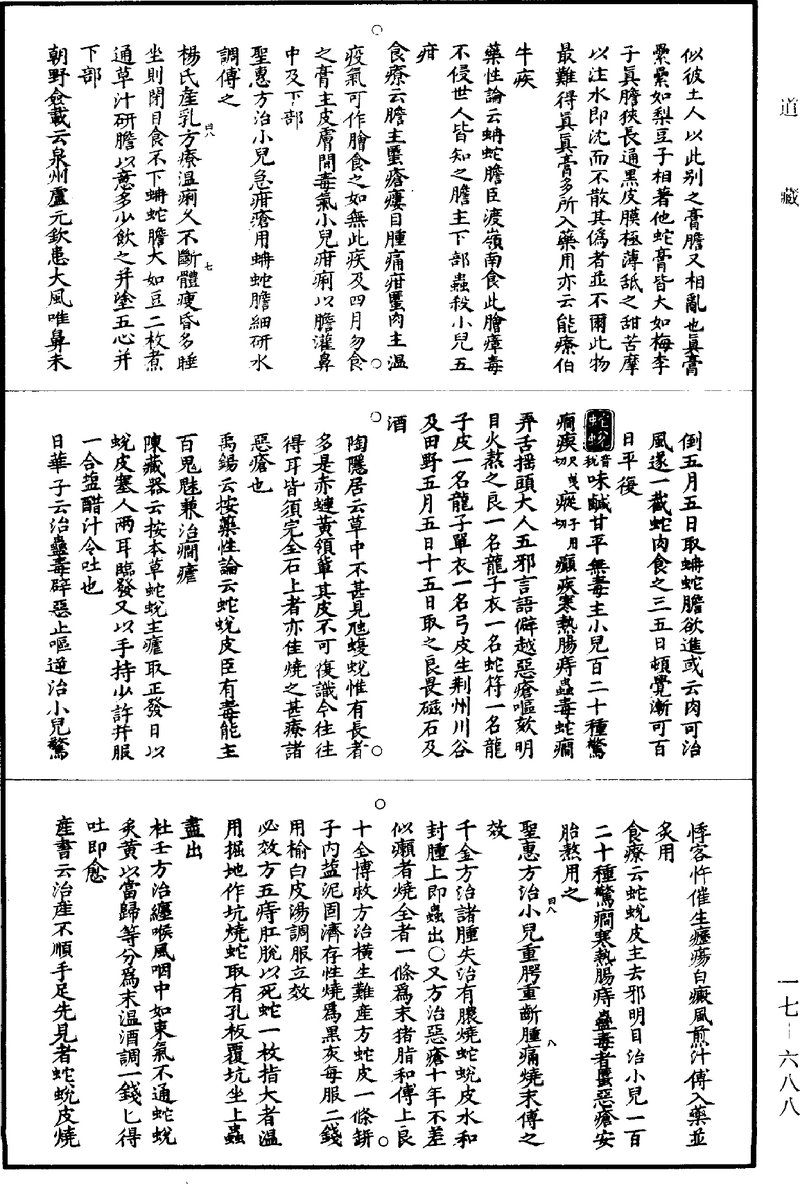 道藏
似彼土人以此別之膏膽又相亂也真膏
纍纍如梨豆子相著他蛇膏皆大如梅李
子真膽狹長通黑皮膜極薄舐之甜苦摩
以注水即沈而不散其偽者並不爾此物
最難得真真膏多所入藥用亦云能療伯
牛疾
藥性論云蚺蛇膽臣渡嶺南食此膾瘴毒
不侵世人皆知之膽主下部蟲殺小兒五
疳
食療云膽主䘌瘡瘻目腫痛疳䘌肉主溫
疫氣可作膾食之如無此疾及四月勿食
之膏主皮膚間毒氣小兒疳痢以膽灌鼻
中及下部
聖惠方治小兒急疳瘡用蚺蛇膽細研水
調傅之
楊氏產乳方療溫痢久不斷體瘦昏多睡
坐則閉目食不下蚺蛇膽大如豆二枚煮
通草汁研膽以意多少飲之并塗五心并
下部
朝野僉載云泉州盧元欽患大風唯鼻未
四八
七
倒五月五日取蚺蛇膽欲進或云肉可治
風遂一截蛇肉食之三五日頓覺漸可百
日平復
蛇蛻音稅味鹹甘平無毒主小兒百二十種驚
癇瘈尺曳切瘲子用切癲疾寒熱腸痔蟲毒蛇癇
弄舌搖頭大人五邪言語僻越惡瘡嘔欬明
目火熬之良一名龍子衣一名蛇符一名龍
子皮一名龍子單衣一名弓皮生荊州川谷
及田野五月五日十五日取之良畏磁石及
酒
陶隱居云草中不甚見虺蝮蛻惟有長者
多是赤蠊黃頷輩其皮不可復識今往往
得耳皆須完全石上者亦佳燒之甚療諸
惡瘡也
禹錫云按藥性論云蛇蛻皮臣有毒能主
百鬼魅兼治癇瘧
陳藏器云按本草蛇蛻主瘧取正發日以
蛻皮塞人兩耳臨發又以手持少許并服
一合鹽醋汁令吐也
日華子云治蠱毒辟惡止嘔逆治小兒驚
悸客忤催生癧瘍白癜風煎汁傅入藥並
炙用
食療云蛇蛻皮主去邪明目治小兒一百
二十種驚癇寒熱腸痔蠱毒者䘌惡瘡安
胎熬用之
聖惠方治小兒重腭重齗腫痛燒末傅之
效
四八
八
千金方治諸腫失治有膿燒蛇蛻皮水和
封腫上即蟲出○又方治惡瘡十年不差
似癩者燒全者一條為末猪脂和傅上良
十全博救方治橫生難產方蛇皮一條缾
子內鹽泥固濟存性燒為黑灰每服二錢
用榆白皮湯調服立效
必效方五痔肛脫以死蛇一枚指大者溫
用掘地作坑燒蛇取有孔板覆坑坐上蟲
盡出
杜壬方治纏喉風咽中如束氣不通蛇蛻
炙黃以當歸等分為末溫酒調一錢匕得
吐即愈
產書云治產不順手足先見者蛇蛻皮燒
一七—六八八